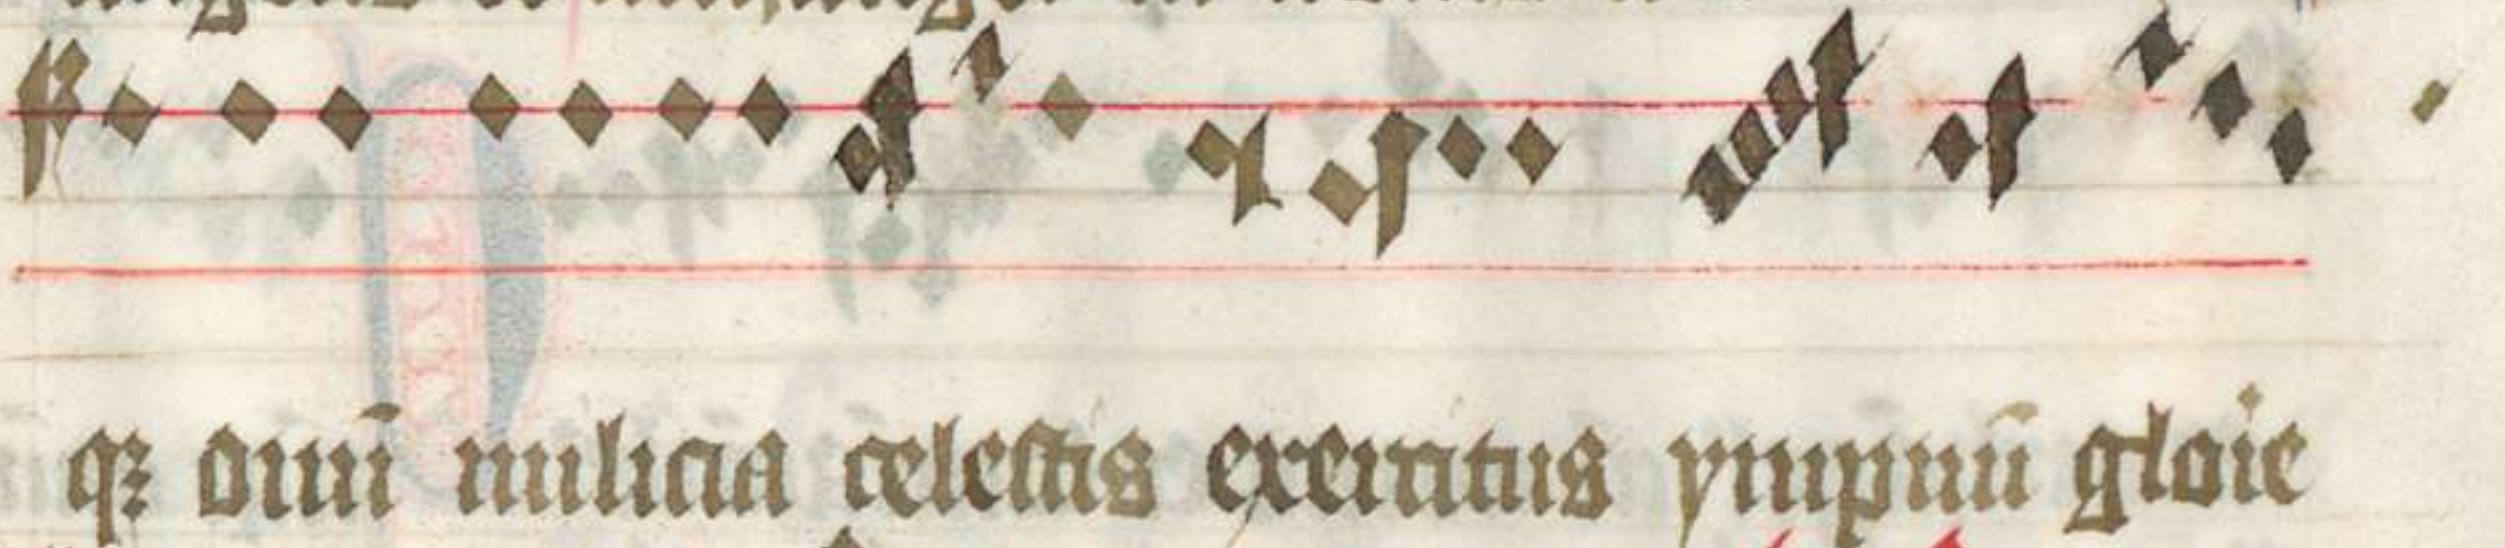 qꝫ om̄i milicia celestis exercitus ympnū gloīe